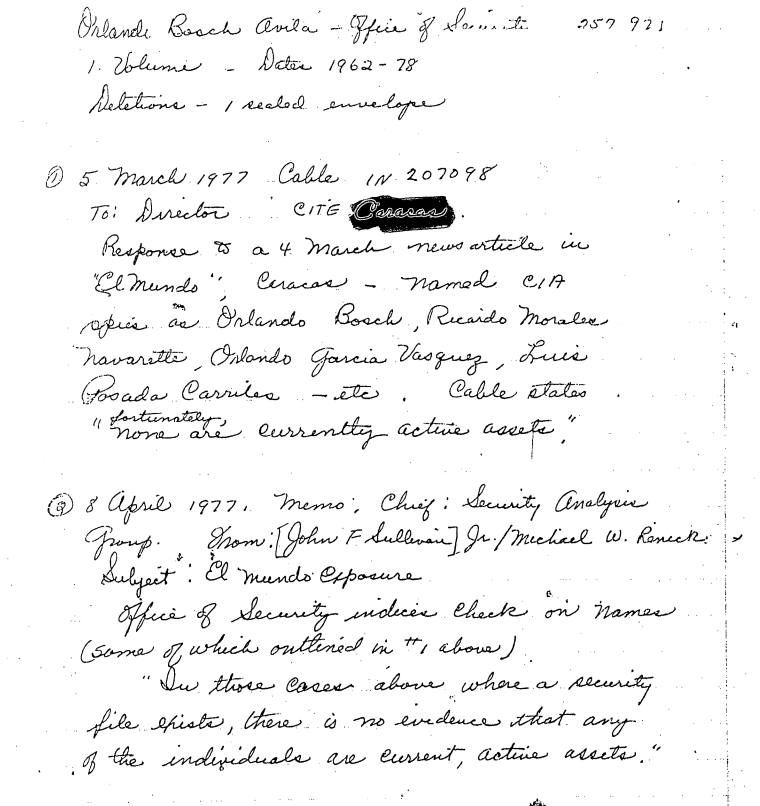 Orlando Bosch Avila - Office of Security 257 921
1. Volume - Dates 1962-78
Deletions - 1 sealed envelope
① 5 March 1977 Cable IN 207098
To: Director CITE Caracas.
Response to a 4 March news article in
"El Mundo", Caracas - named CIA
spies as Orlando Bosch, Ricardo Morales
Navarette, Orlando Garcia Vasquez, Luis
Posada Carriles - etc. Cable states
"fortunately, none are currently active assets."
② 8 April 1977. Memo: Chief: Security Analysis
Group. From: [John F Sullivan] Jr./Michael W.
Subject: "El Mundo" Exposure
Office of Security indices check on names
(some of which outlined in #1 above)
"In those cases above where a security
file exists, there is no evidence that any
of the individuals are current, active assets."